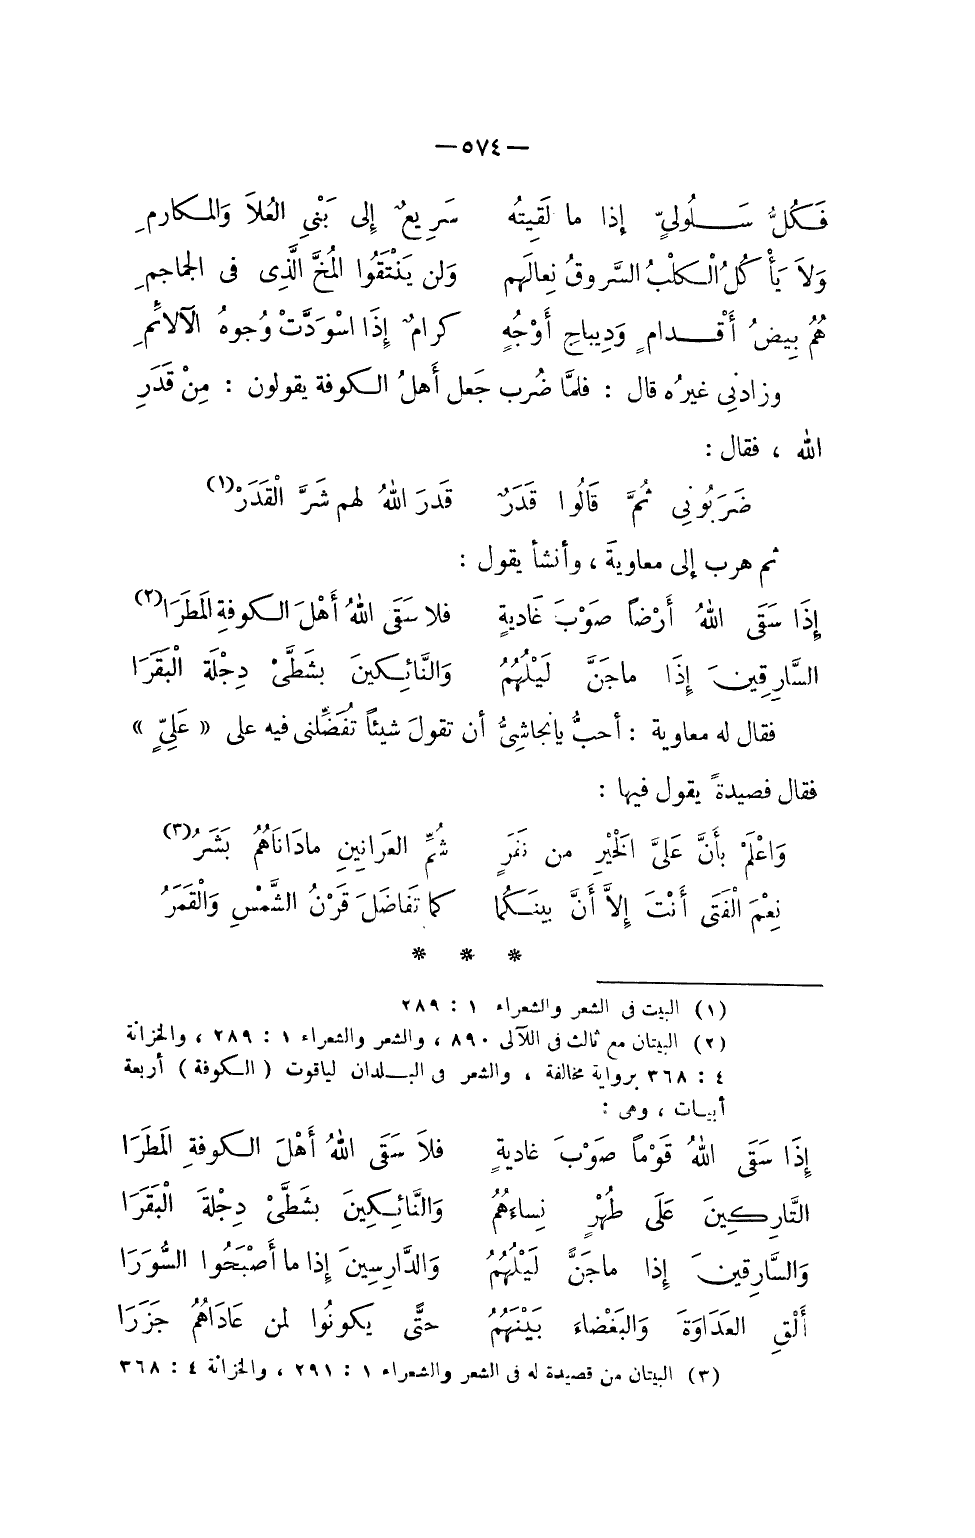 — ٥٧٤ —
فَكُلُّ سَلُولِيٍّ إذا ما لَقِيتُه سَرِيعٌ إلى بَنْيِ العُلاَ وَالمكارمِ
وَلاَ يَأْكُلُ الْكلْبُ السَّروقُ نِعالَهم وَلن يَنْتَقُوا المُخَّ الَّذِى فى الجماجمِ
هُمُ بِيضُ أقْدامٍ وَدِيباجِ أوْجُهٍ كرامٌ إِذَا اسْوَدَّتْ وُجوهُ الآلائمِ
وزادنِي غيرُه قال : فلمَّا ضُرب جَعل أهلُ الكوفة يقولون : مِنْ قَدَرِ
الله ، فقال :
ضَرَبُونِي ثُمَّ قَالُوا قَدَرٌ قَدرَ اللهُ لهم شَرَّ الْقَدَرْ(١)
ثم هرب إلى معاويةَ ، وأنشأ يقول :
إِذَا سَقَى اللهُ أرْضاً صوْبَ غَاديةٍ فلا سَقَى اللهُ أهْلَ الكوفةِ المَطَرَا(٢)
السَّارِقِينَ إِذَا ماجَنَّ لَيْلُهُمُ وَالنَّائِكينَ بشَطَّىْ دِجْلَة الْبَقَرَا
فقال له معاوية : أحبُّ يانجاشِيُّ أن تقولَ شيئاً تُفَضِّلنى فيه على « عَلِيٍّ »
فقال قصيدةً يقول فيها :
وَاعْلَمْ بأَنَّ عَلىَّ الخَيْرِ من نَفَرٍ شُمِّ العَرانِينِ مادَانَاهُمُ بَشَرُ(٣)
نِعْمَ الْفَتَى أنْتَ إلاَّ أنَّ بينَكُما كما تَفَاضَلَ قَرْنُ الشَّمْسِ وَالْقَمَرُ
* * *
(١) البيت فى الشعر والشعراء ١ : ٢٨٩
(٢) البيتان مع ثالث فى اللآلى ٨٩٠ ، والشعر والشعراء ١ : ٢٨٩ ، والخزانة
٤ : ٣٦٨ برواية مخالفة ، والشعر فى البلدان لياقوت ( الكوفة ) أربعة
أبيات ، وهى :
إِذَا سَقَى اللهُ قَوْماً صَوْبَ غاديةٍ فلاَ سَقَى اللهُ أهْلَ الكوفةِ المَطَرَا
التَّارِكِينَ عَلَى طُهْرٍ نِساءَهُمُ وَالنَّائِكِينَ بشَطَّىْ دِجْلةَ الْبَقَرَا
وَالسَّارِقينَ إذا ماجَنَّ لَيْلُهُمُ وَالدَّارِسِينَ إذا ما أصْبَحُوا السُّوَرَا
ألْقِ العَدَاوَةَ وَالبَغْضاءَ بَيْنَهُمُ حتَّى يكونُوا لمن عَادَاهُمُ جَزَرَا
(٣) البيتان من قصيدة له فى الشعر والشعراء ١ : ٢٩١ ، والخزانة ٤ : ٣٦٨